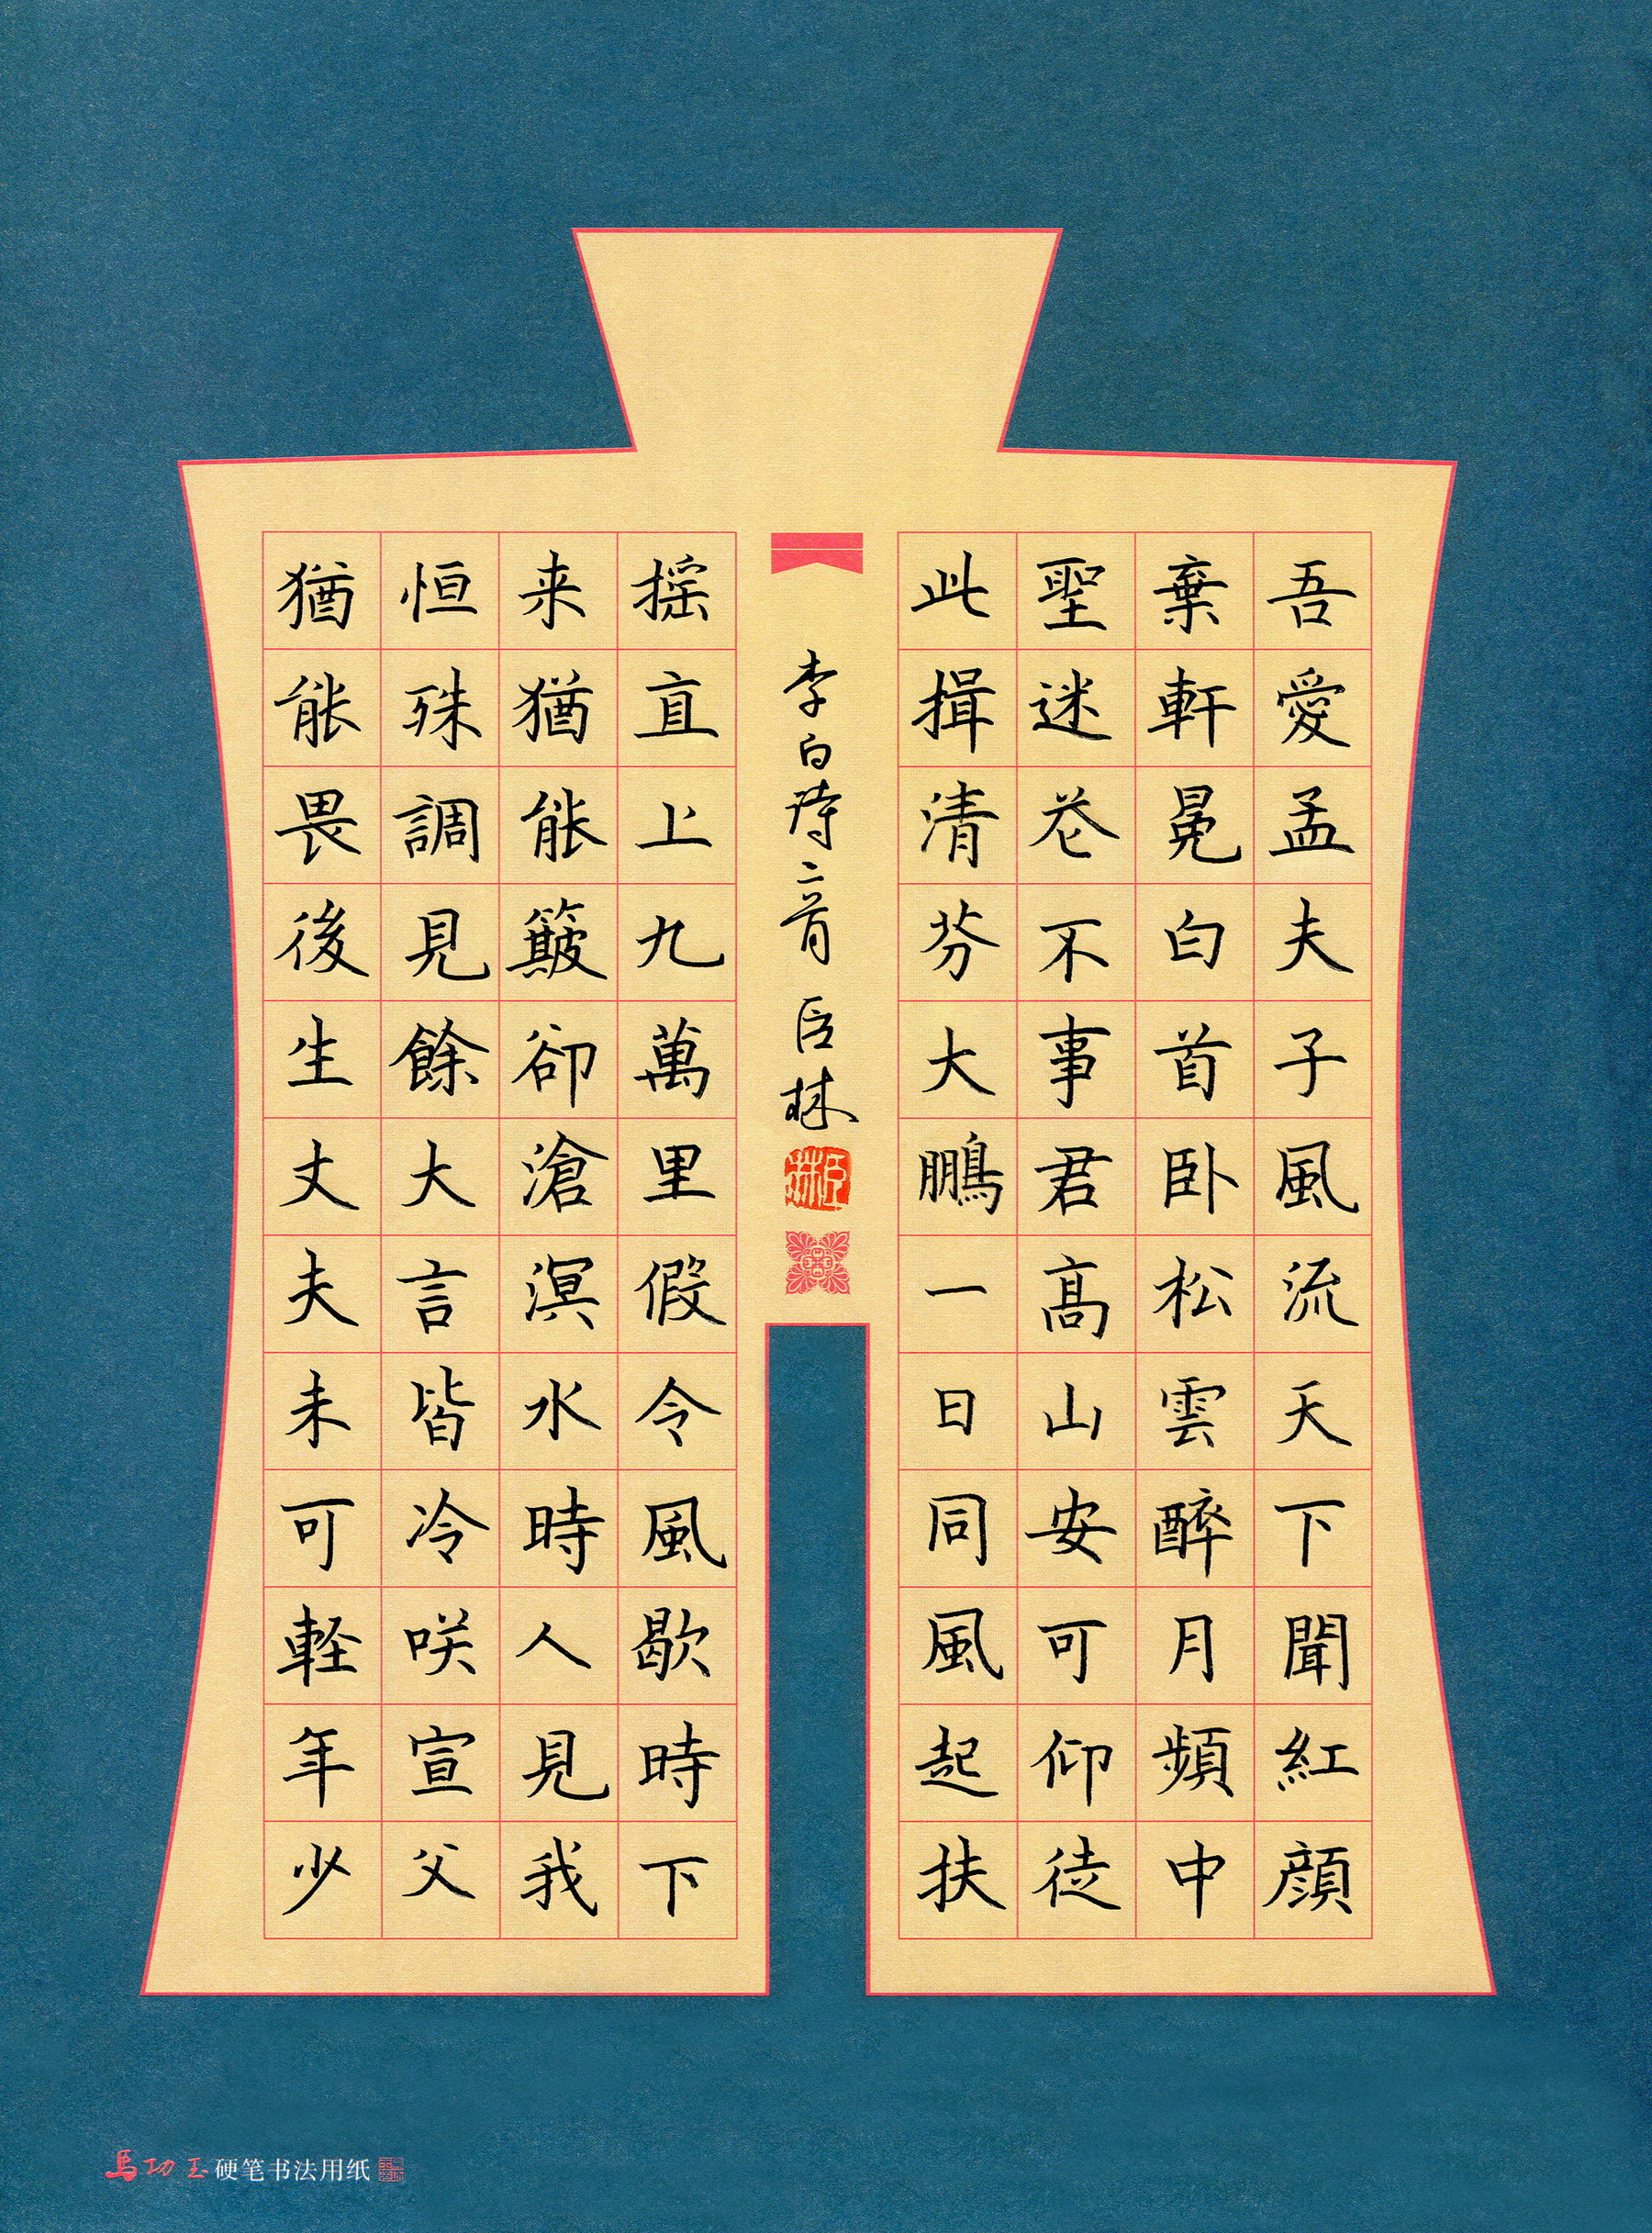 吾愛孟夫子風流天下聞紅顔
棄軒冕白首卧松雲醉月頻中
聖迷花不事君髙山安可仰徒
此揖清芬大鵬一日同風起扶
李白詩二首 臣林
臣林
搖直上九萬里假令風歇時下
来猶能簸卻滄溟水時人見我
恒殊調見餘大言皆冷咲宣父
猶能畏後生丈夫未可軽年少
馬功玉硬笔书法用纸